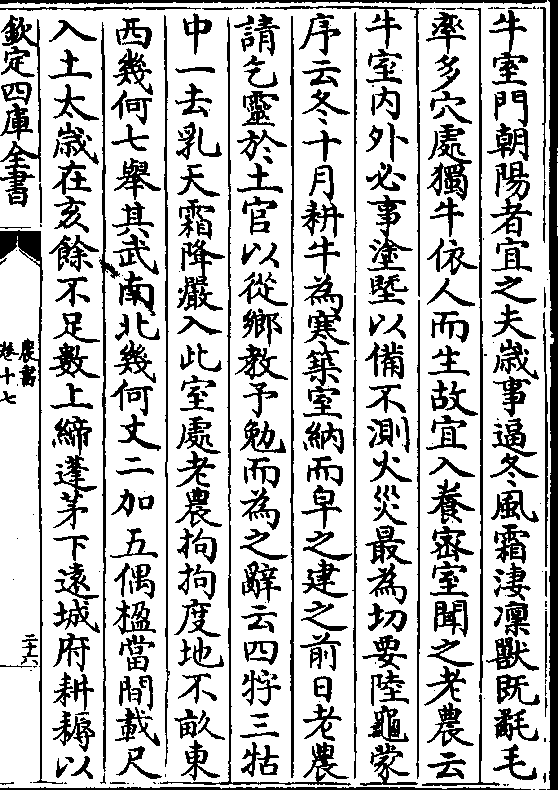 牛室門朝陽者宜之夫歲事逼冬風霜淒凜獸既氄毛
率多穴處獨牛依人而生故宜入養密室聞之老農云
牛室內外必事塗墍以備不測火災最為切要陸龜蒙
序云冬十月耕牛為寒築室納而皁之建之前日老農
請乞靈於土官以從鄉教予勉而為之辭云四牸三牯
中一去乳天霜降嚴入此室處老農拘拘度地不畝東
西幾何七舉其武南北幾何丈二加五偶楹當間載尺
入土太歲在亥餘不足數上締蓬茅下遠城府耕耨以
欽定四庫全書
農書
卷十七
二十六